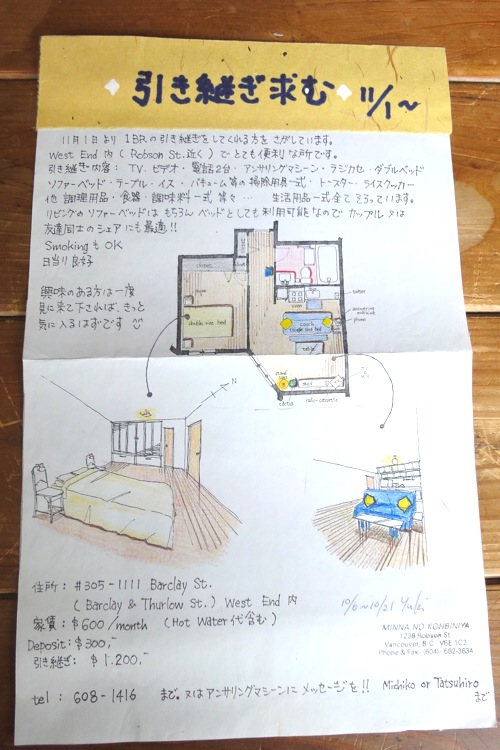 引き継ぎ求む 11/1〜
11月1日より 1BRの引き継ぎをしてくれる方をさがしています。
West End内 (Robson St.近く)でとても便利な所です。
引き継ぎ内容: TV. ビデオ・電話2台・アンサリングマシーン・ラジカセ・ダブルベッド
ソファーベッド・テーブル・イス・バキューム等の掃除用具一式・トースター・ライスクッカー
他 調理用品・食器・調味料一式 等々… 生活用品一式全てそろっています。
リビングのソファーベッドはもちろんベッドとしても利用可能なのでカップル又は
友達同士のシェアにも最適!!
SmokingもOK
日当り良好
興味のある方は一度
見に来て下されば、きっと
気に入るはずです
closet
double size bed
couch
table
answering machine
phone
cactus
radio-cassette
N
住所: #305-1111 Barclay St.
(Barclay & Thurlow St.) West End 内
家賃: $600/month (Hot Water代含む)
Deposit: $300,-
引き継ぎ: $1,200,-
10/6~10/21 Yuki
MINNA NO KONBINIYA
1238 Robson St.
Vancouver, B.C. V6E 1C2
Phone & Fax- (604)-682-3634
tel: 608-1416 まで. 又はアンサリングマシーンに メッセージを!! Michiko or Tatsuhiro
まで